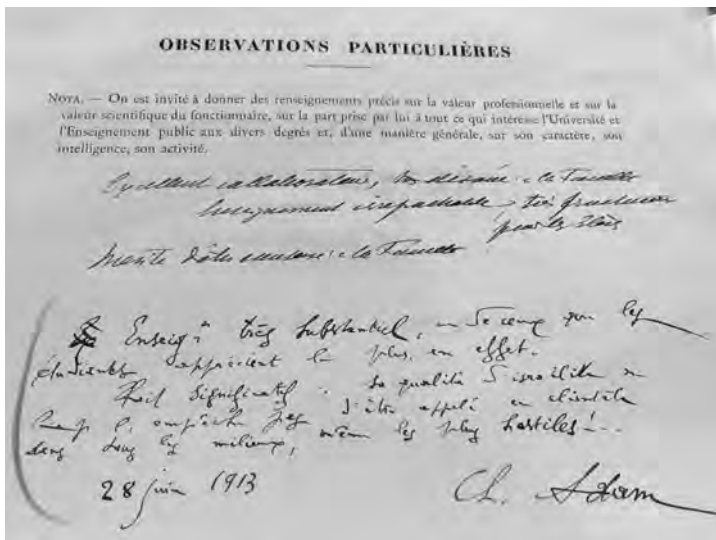 OBSERVATIONS PARTICULIÈRES
NOTA. — On est invité à donner des renseignements précis sur la valeur professionnelle et sur la
valeur scientifique du fonctionnaire, sur la part prise par lui à tout ce qui intéresse l'Université et
l'Enseignement public aux divers degrés et, d'une manière générale, sur son caractère, son
intelligence, son activité.
Excellent collaborateur, très dévoué à la Faculté
Enseignement irréprochable, très fructueux
pour les élèves
Mérite d'être à la Faculté
Enseigt très substantiel, un de ceux que les
étudiants apprécient le plus, en effet.
Trait significatif : sa qualité d'israélite ne
l'empêche pas d'être appelé en clientèle
dans tous les milieux, même les plus hostiles !..
28 juin 1913 Ch. Adam